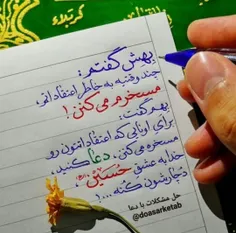 کربلاء
بهش گفتم:
چند وقتیه به خاطر اعتقاداتم،
مسخرم می کنن!
بهم گفت:
برای اونایی که اعتقاداتتون رو
مسخره می کنن، دعا کنید،
خدا به عشق حسین (ع)
دچارشون کنه...!
حل مشکلات با دعا
@doasarketab